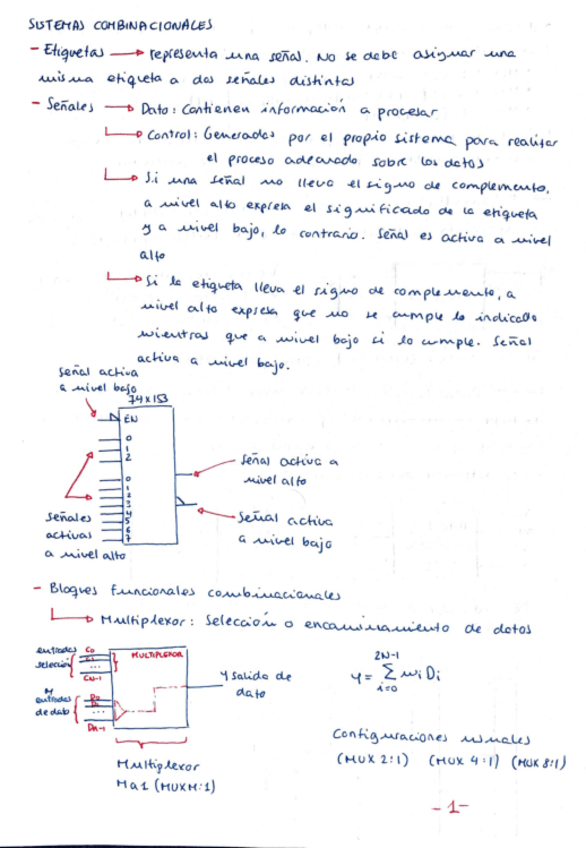 SISTEMAS COMBINACIONALES
- Etiquetas → representa una señal. No se debe asignar una
misma etiqueta a dos señales distintas
- Señales → Dato: Contienen información a procesar
→ Control: Generadas por el propio sistema para realizar
el proceso adecuado sobre los datos
→ Si una señal no lleva el signo de complemento,
a nivel alto expresa el significado de la etiqueta
y a nivel bajo, lo contrario. Señal es activa a nivel
alto
→ Si la etiqueta lleva el signo de complemento, a
nivel alto expresa que no se cumple lo indicado
mientras que a nivel bajo si lo cumple. Señal
activa a nivel bajo.
señal activa
a nivel bajo
74x153
EN
0
1
2
0
1
2
3
4
5
6
7
señales
activas
a nivel alto
señal activa a
nivel alto
señal activa
a nivel bajo
- Bloques funcionales combinacionales
→ Multiplexor: Selección o encaminamiento de datos
entradas
selección
C0
C1
...
CN-1
MULTIPLEXOR
M
entradas
de dato
D0
D1
...
DM-1
y salida de
dato
y = 2N-1 Σ i=0 mi Di
Multiplexor
M a 1 (MUX M:1)
Configuraciones usuales
(MUX 2:1) (MUX 4:1) (MUX 8:1)
-1-